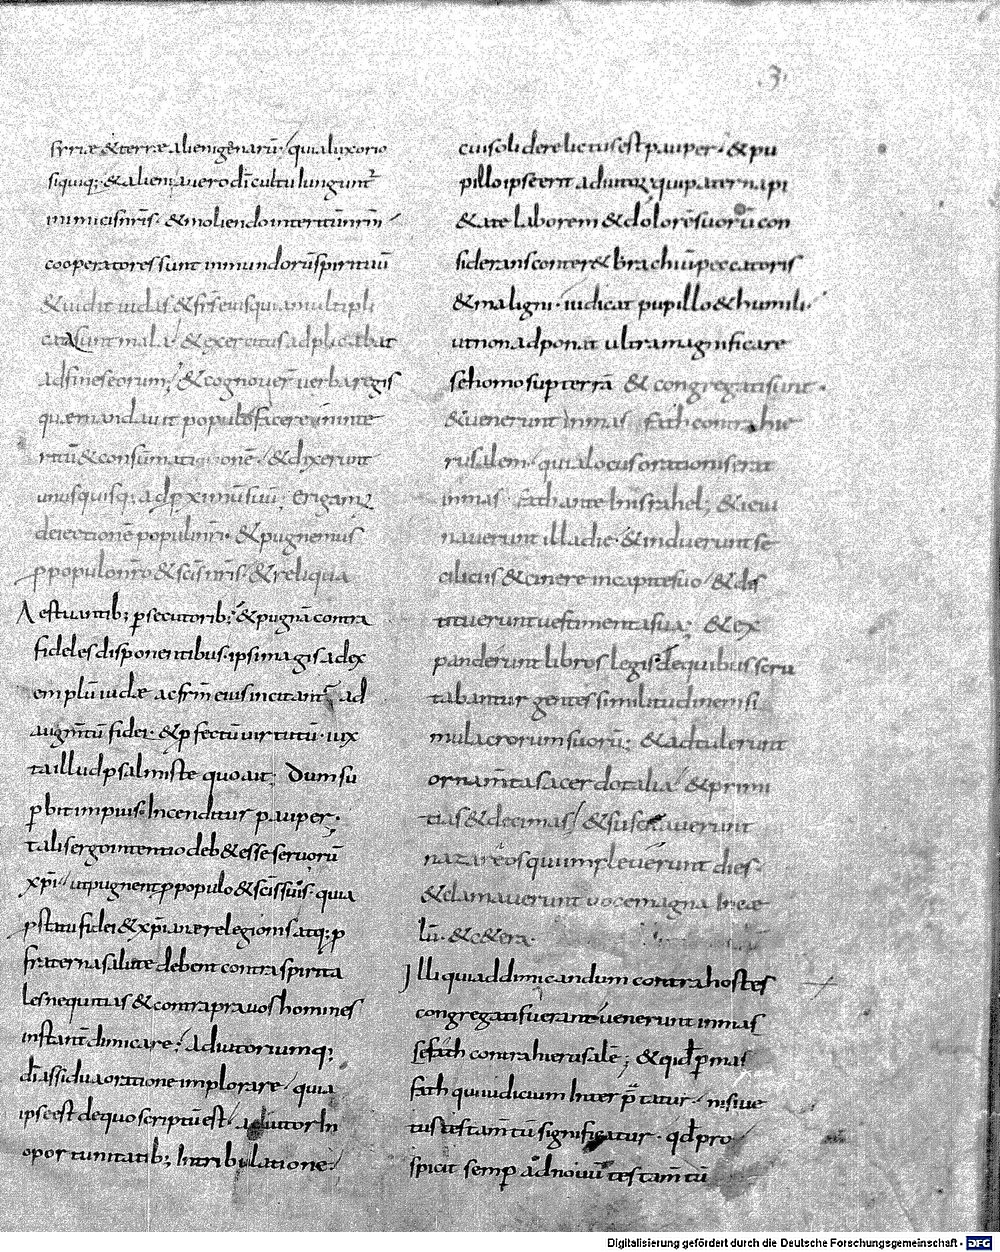 3.
syriæ & terræ alienigenarū / quia luxorio
siquiq; & alieni a vero dī cultu iungunt᷑
inimicis nr̄is · & moliendo interitū nr̄m /
cooperatores sunt inmundorū spirituū
& vidit iudas & fr̄s eius quia multipli
cata sunt mala / & exercitus adplicabat
ad fines eorum / & cognover̄ verba regis
quæ mandavit populo facere in inte
ritū & consūmationē / & dixerunt
unusquisq; ad p̱ximū suū · Erigam᷒
deiectionē populi nr̄i · & pugnemus
ꝓ populo nr̄o & sc̄is nr̄is · & reliqua
Aestuantib; ꝑsecutorib; & pugnā contra
fideles disponentibus · ipsi magis ad ex
emplū iudæ ac fr̄m eius incitant᷑ ad
augm̄tū fidei · & ꝑfectū virtutū · iux
ta illud psalmistę quo ait; Dum su
ꝑbit impius · Incenditur pauper;
talis ergo intentio deb& esse servorū
xp̄i / ut pugnent ꝓ populo & sc̄is suis · quia
ꝓ statu fidei & xp̄ianæ relegionis atq; ꝓ
fraterna salute debent contra spirita
les nequitias & contra pravos homines
instant̄ dimicare; Adiutoriumq;
dī assidua oratione implorare / quia
ipse est de quo scriptū est / adiutor In
oportunitatib; In tribulatione /
cui soli derelictus est pauper · & pu
pillo ipse erit adiutor qui paterna pi
&ate laborem & dolorē suorū con
siderans conter& brachiū peccatoris
& maligni · iudicat pupillo & humili ·
ut non adponat ultra magnificare
se homo suꝑ terrā & congregati sunt ·
& venerunt in mas fath contra hie
rusalem / quia locus orationis erat
in mas fath ante In israhel; & ieiu
naverunt illa die · & induerunt se
ciliciis & cinere in capite suo / & dis
tituerunt vestimenta sua; & ex
panderunt libros legis · de quibus scru
tabantur gentes similitudinem si
mulacrorum suorū; & adtulerunt
ornam̄ta sacerdotalia / & primi
tias & decimas / & suscitaverunt
nazareos qui impleverunt dies ·
& clamaverunt voce magna In cæ
lū · & c&era ·
Illi qui ad dimicandum contra hostes
congregati fuerant venerunt in mas
sefath contra hierusalē; & qđ ꝑ mas
fath qui iudicium Inter p̄tatur / nisi ve
tus testam̄tū significatur · qđ pro
spicit semꝑ ad novū testam̄tū
Digitalisierung gefördert durch die Deutsche Forschungsgemeinschaft - DFG